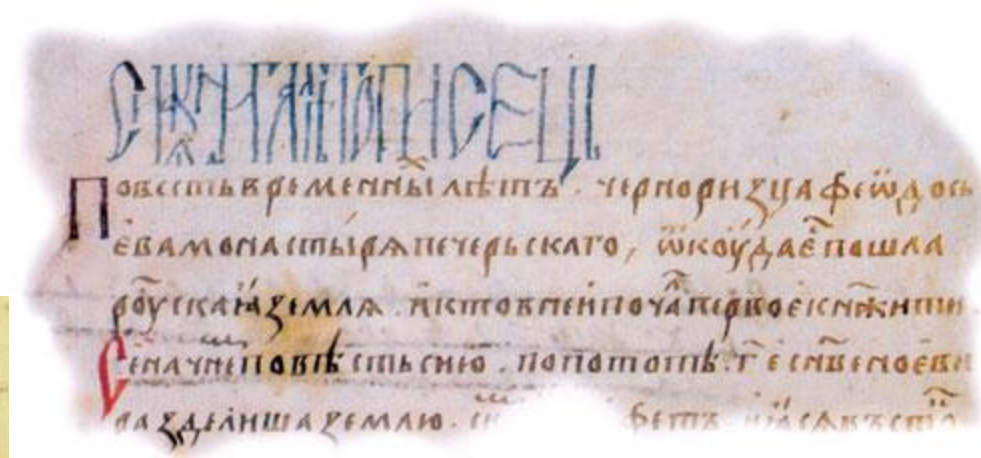 СИꙖ КНИГА ЛѢТОПИСЕЦЬ
Повесть временныⷯ лѣтъ . черноризца феѡдось
ева монастырѧ печерьскаго, ѿкоуда е҃ пошла
роускаꙗ землѧ . и кто в неи поча первое кнѧжити
Се начнеⷨ повѣсть сию . по потопѣ . г҃ е сн҃ве ноеви
разделиша землю . фетъ . ꙗсѧ въстоⷦ